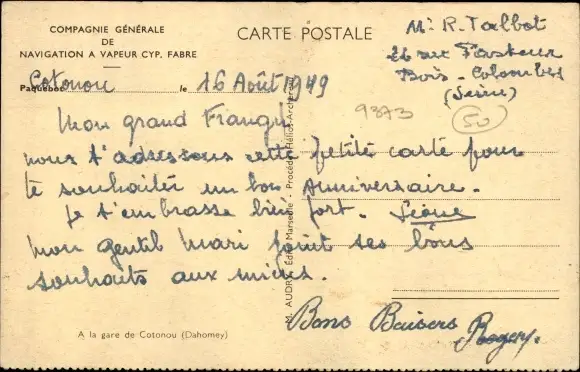 COMPAGNIE GÉNÉRALE
DE
NAVIGATION A VAPEUR CYP. FABRE
CARTE POSTALE
Mr. R. Talbot
26 rue Pasteur
Bois-Colombes
(Seine)
Paquebot Cotonou le 16 Août 1949
9373
50
Mon grand
nous t'adressons cette petite carte pour
te souhaiter un bon anniversaire.
Je t'embrasse bien fort.
Mon gentil Mari joint ses bons
souhaits aux miens.
Bons Baisers Roger
A la gare de Cotonou (Dahomey)
M. AUDRY, Édit. Marseille - Procédés Hélios-Archereau